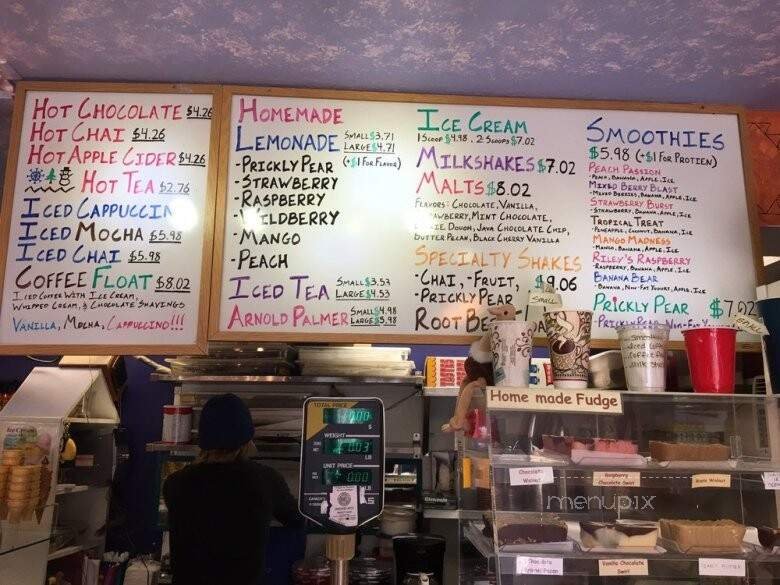 HOT CHOCOLATE $4.26
HOT CHAI $4.26
HOT APPLE CIDER $4.26
HOT TEA $2.76
ICED CAPPUCCIN
ICED MOCHA $5.98
ICED CHAI $5.98
COFFEE FLOAT $8.02
ICED COFFEE WITH ICE CREAM,
WHIPPED CREAM, & CHOCOLATE SHAVINGS
VANILLA, MOCHA, CAPPUCCINO!!!
HOMEMADE
LEMONADE SMALL $3.71
LARGE $4.71
-PRICKLY PEAR (+$1 FOR FLAVOR)
-STRAWBERRY
-RASPBERRY
-WILDBERRY
-MANGO
-PEACH
ICED TEA SMALL $3.53
LARGE $4.53
ARNOLD PALMER SMALL $4.98
LARGE $5.98
ICE CREAM
1 SCOOP $4.98, 2 SCOOPS $7.02
MILKSHAKES $7.02
MALTS $8.02
FLAVORS: CHOCOLATE, VANILLA,
AWBERRY, MINT CHOCOLATE,
IE DOUGH, JAVA CHOCOLATE CHIP,
BUTTER PECAN, BLACK CHERRY VANILLA
SPECIALTY SHAKES
-CHAI, -FRUIT, $9.06
-PRICKLY PEAR
ROOT BE OA
SMOOTHIES
$5.98 (+$1 FOR PROTIEN)
PEACH PASSION
-PEACH, BANANA, APPLE, ICE
MIXED BERRY BLAST
-MIXED BERRIES, BANANA, APPLE, ICE
STRAWBERRY BURST
-STRAWBERRY, BANANA, APPLE, ICE
TROPICAL TREAT
-PINEAPPLE, COCONUT, BANANA, ICE
MANGO MADNESS
-MANGO, BANANA, APPLE, ICE
RILEY'S RASPBERRY
-RASPBERRY, BANANA, APPLE, ICE
BANANA BEAR
-BANANA, NON-FAT YOGURT, APPLE, ICE
PRICKLY PEAR $7.02
SMALL
SMALL
Home made Fudge
TOTAL PRICE
WEIGHT
UNIT PRICE
Chocolate
Walnut
Raspberry
Chocolate Swirl
Maple Walnut
Vanilla Chocolate
Swirl
menupix